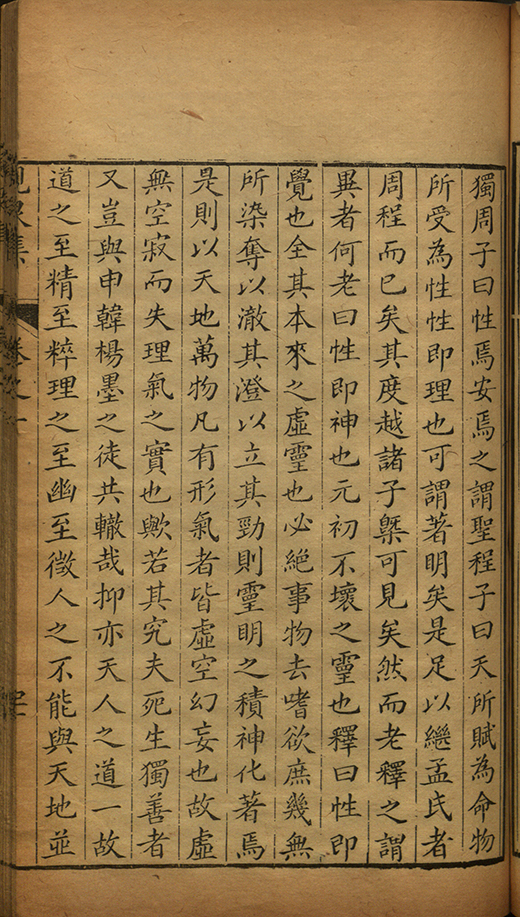 獨周子曰性焉安焉之謂聖程子曰天所賦為命物
所受為性性即理也可謂著明矣是足以繼孟氏者
周程而已矣其度越諸子槩可見矣然而老釋之謂
異者何老曰性即神也元初不壞之靈也釋曰性即
覺也全其本來之虛靈也必絶事物去嗜欲庶幾無
所染奪以澈其澄以立其勁則靈明之積神化著焉
是則以天地萬物凡有形氣者皆虛空幻妄也故虛
無空寂而失理氣之實也歟若其究夫死生獨善者
又豈與申韓楊墨之徒共轍哉抑亦天人之道一故
道之至精至粹理之至幽至微人之不能與天地並
峴泉集
卷之一